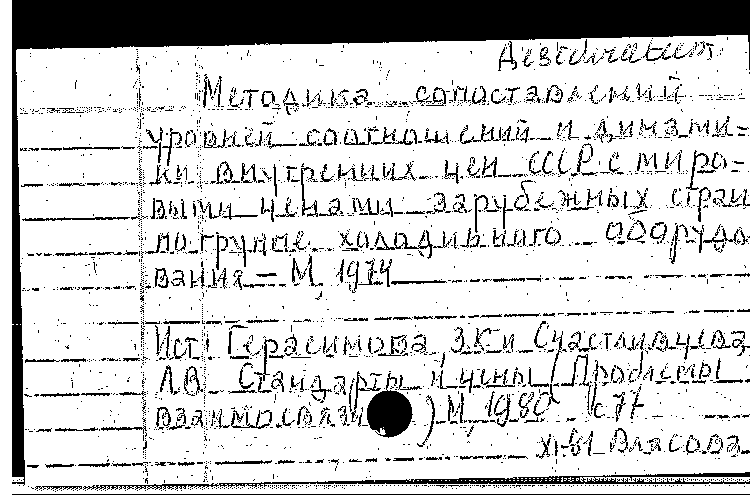 Desideratum
Методика сопоставлений
уровней соотношений и динами-
ки внутренних цен СССР с миро-
выми ценами зарубежных стран
по группе холодильного оборудо
вания – М, 1974
Ист: Герасимова З.К и Счастливцева
Л.В. Стандарты и цены (Проблемы
взаимосвязи) М, 1980 с 77
XI-81 Власова